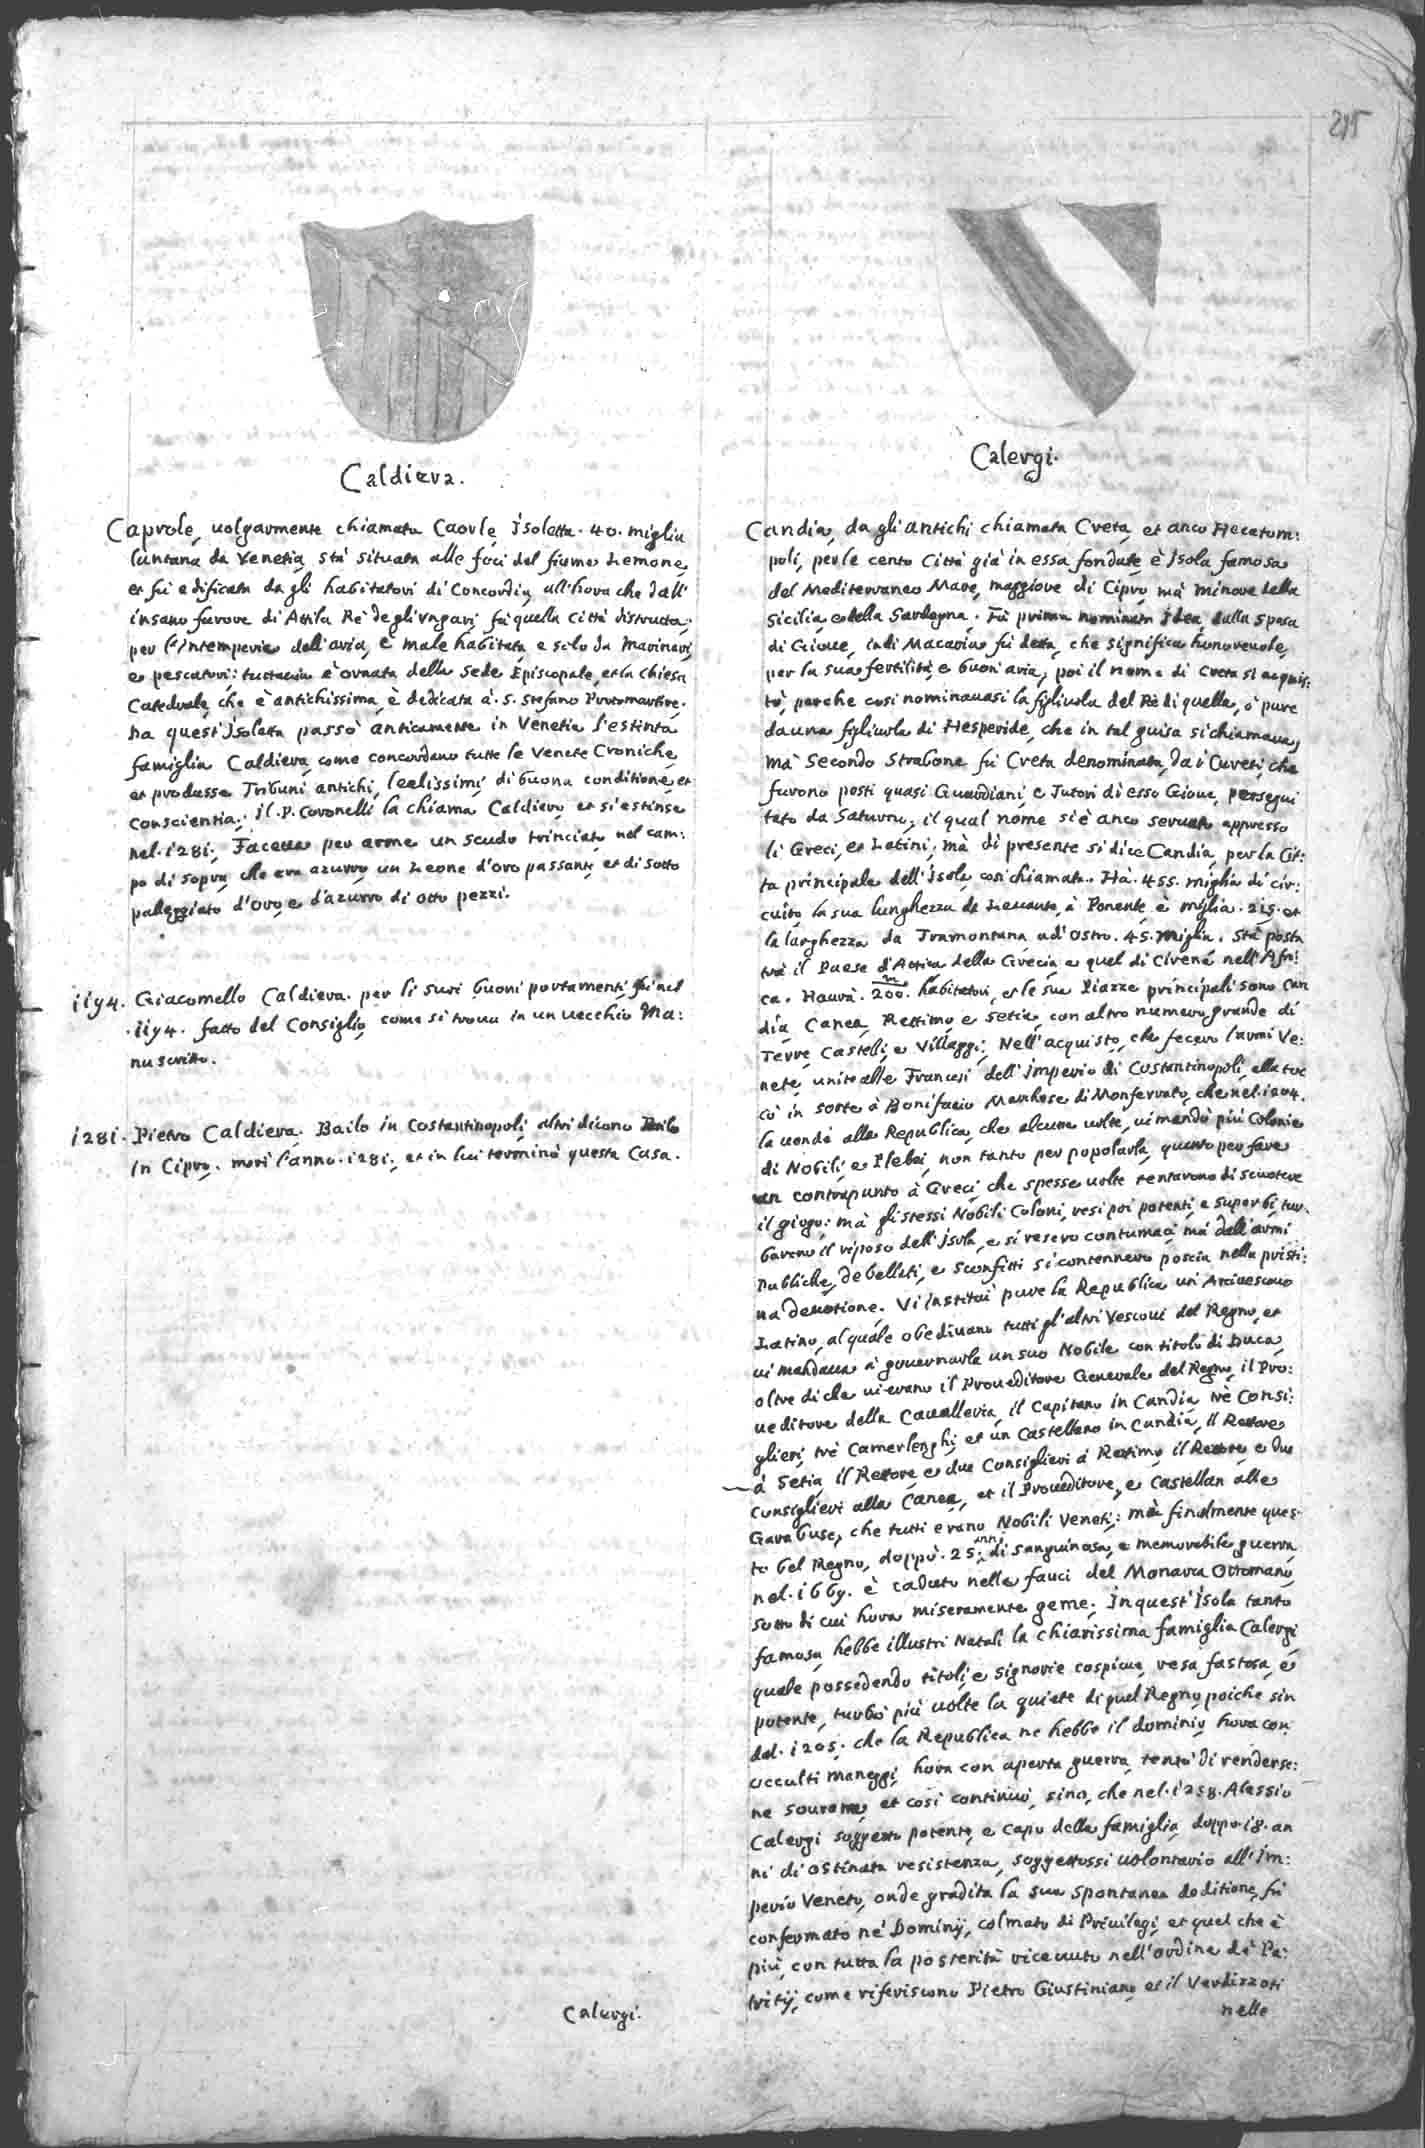 215
Caldiera.
Caprole, uolgarmente chiamata Caorle, Isoletta .40. miglia
luntana da Venetia, stà situata alle foci del fiume Lemone,
et fù edificata da gli habitatori di Concordia, all'hora che dall'
insano furore di Attila Rè degli Vngari, fù quella Città distructa;
per l'intemperie dell'aria, è male habitata, e solo da Marinari,
e pescatori: tuttauia è ornata della Sede Episcopale, et la Chiesa
Catedrale, che è antichissima, è dedicata à .S. Stefano Protomartire.
Da quest'Isoletta passò anticamente in Venetia l'estinta
famiglia Caldiera, come concordano tutte le Venete Croniche,
et produsse Tribuni antichi, leelissimi, di buona conditione, et
conscientia; il .P. Coronelli la chiama Caldiero, et si estinse
nel .1281. Faceua per arme un scudo trinciato, nel cam:
po di sopra, che era azurro, un Leone d'oro passante, et di sotto
palleggiato d'oro, e d'azurro di otto pezzi.
1194. Giacomello Caldiera. per li suoi buoni portamenti, fù nel
.1194. fatto del Consiglio, come si troua in un uecchio Ma:
nuscritto.
1281. Pietro Caldiera. Bailo in Costantinopoli, altri dicono Bailo
in Cipro, morì l'anno .1281. et in lui terminò questa Casa.
Calergi.
Calergi.
Candia, da gli antichi chiamata Creta, et anco Hecatom:
poli, per le cento Città già in essa fondate è Isola famosa
del Mediterraneo Mare, maggiore di Cipro, mà minore della
Sicilia, e della Sardegna. Fù prima nominata Idea, dalla Sposa
di Gioue, indi Macarias fù detta, che significa honoreuole,
per la sua fertilità, e buon'aria, poi il nome di Creta si acquis:
tò, perche cosi nominauasi la figliuola del Rè di quella, ò pure
da una figliuola di Hesperide, che in tal guisa si chiamaua,
mà Secondo Strabone fù Creta denominata, da i Cureti, che
furono posti quasi Guardiani, e Tutori di esso Gioue, persegui
tato da Saturno; il qual nome si è anco seruato appresso
li Greci, et Latini; mà di presente si dice Candia, per la Cit:
ta principale dell'Isola, cosi chiamata. Hà .455. miglia di cir:
cuito, la sua lunghezza da Leuante, à Ponente, è miglia .215. et
la larghezza da Tramontana ad'Ostro .45. Miglia. Stà posta
trà il Paese d'Attica della Grecia, e quel di Cirene nell'Afri:
ca. Haurà .200.m habitatori, et le sue Piazze principali sono Can
dia, Canea, Rettimo, e Setia, con altro numero grande di
Terre, Castelli, e Villaggi; Nell'acquisto, che fecero l'armi Ve:
nete, unite alle Francesi dell'Imperio di Costantinopoli, ella toc
cò in sorte à Bonifacio Marchese di Monferrato, che nel .1204.
la uendè alla Republica, che alcune uolte, ui mandò più Colonie
di Nobili, e Plebei, non tanto per popolarla, quanto per fare
un contrapunto à Greci, che spesse uolte tentarono di scuotere
il giogo; mà gli stessi Nobili Coloni, resi poi potenti, e superbi, tur.
barono il riposo dell'Isola, e si resero contumaci, mà dall'armi
Publiche, debellati, e sconfitti si contennero poscia nella pristi:
na deuotione. Vi Instituì pure la Republica un'Arciuescouo
Latino, al quale obediuano tutti gl'altri Vescoui del Regno, et
ui mandaua à gouernarla un suo Nobile con titolo di Duca,
oltre di che ui erano il Proueditore Generale del Regno, il Pro:
ueditore della Caualleria, il Capitano in Candia, trè Consi:
glieri, trè Camerlenghi, et un Castellano in Candia, il Rettore
à Setia, il Rettore, e due Consiglieri à Rettimo, il Rettore, e due
Consiglieri alla Canea, et il Proueditore, e Castellan alle
Garabuse, che tutti erano Nobili Veneti; mà finalmente ques.
to bel Regno, doppò .25. anni di sanguinosa, e memorabile guerra
nel .1669. è caduto nelle fauci del Monarca Ottomano,
sotto di cui hora miseramente geme. In quest'Isola tanto
famosa, hebbe illustri Natali la chiarissima famiglia Calergi,
quale possedendo titoli, e Signorie cospicue, resa fastosa, e
potente, turbò più uolte la quiete di quel Regno, poiche sin
dal .1205. che la Republica ne hebbe il dominio, hora con
occulti maneggi, hora con aperta guerra, tentò di renderse:
ne sourana, et cosi continuò, sino, che nel .1258. Alessio
Calergi soggetto potente, e capo della famiglia, doppo .18. an
ni di ostinata resistenza, soggettossi uolontario all'Im:
perio Veneto, onde gradita la sua spontanea deditione, fù
confermato ne' Dominij, colmato di Priuilegi, et quel che è
più, con tutta la posterità riceuuto nell'ordine de' Pa:
tritij, come riferiscono Pietro Giustiniano, et il Verdizzoti
nelle